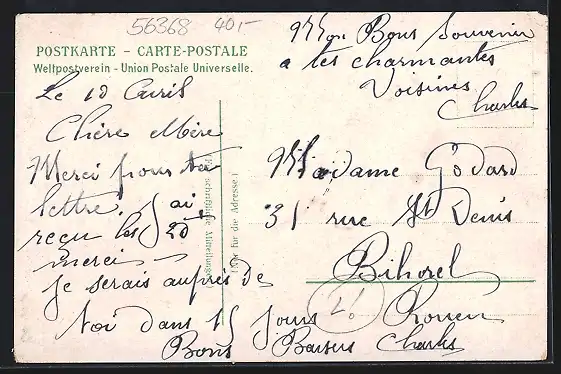 56368 40,-
POSTKARTE – CARTE-POSTALE
Weltpostverein - Union Postale Universelle.
Le 10 Avril
Chère Mère
Merci pour ta
lettre. J'ai
reçu les 20
merci
je serais auprès de
toi dans 15 jours
Bons Baisers Charles
Mon Bons Souvenir
a tes charmantes
Voisines
Charles
Madame Godard
31 rue St Denis
Bihorel
Rouen
Für schriftliche Mitteilungen
(Nur für die Adresse.)